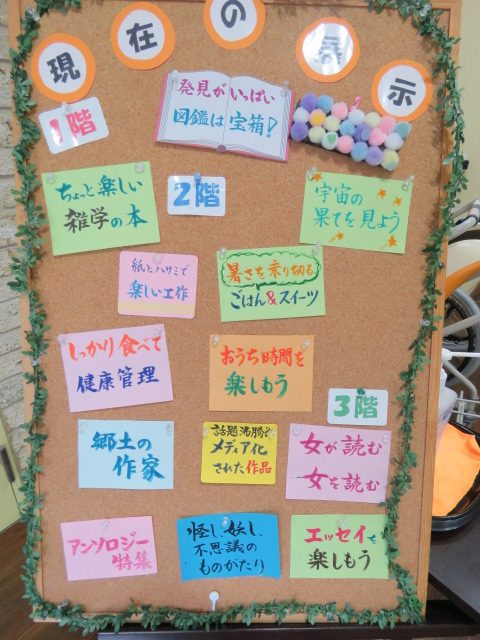 現在の展示
1階
発見がいっぱい
図鑑は宝箱!
ちょっと楽しい
雑学の本
2階
宇宙の
果てを見よう
紙とハサミで
楽しい工作
暑さを乗り切る
ごはん&スイーツ
しっかり食べて
健康管理
おうち時間を
楽しもう
3階
郷土の
作家
話題沸騰?
メディア化
された作品
女が読む
女を読む
アンソロジー
特集
怪し、妖し、
不思議の
ものがたり
エッセイを
楽しもう